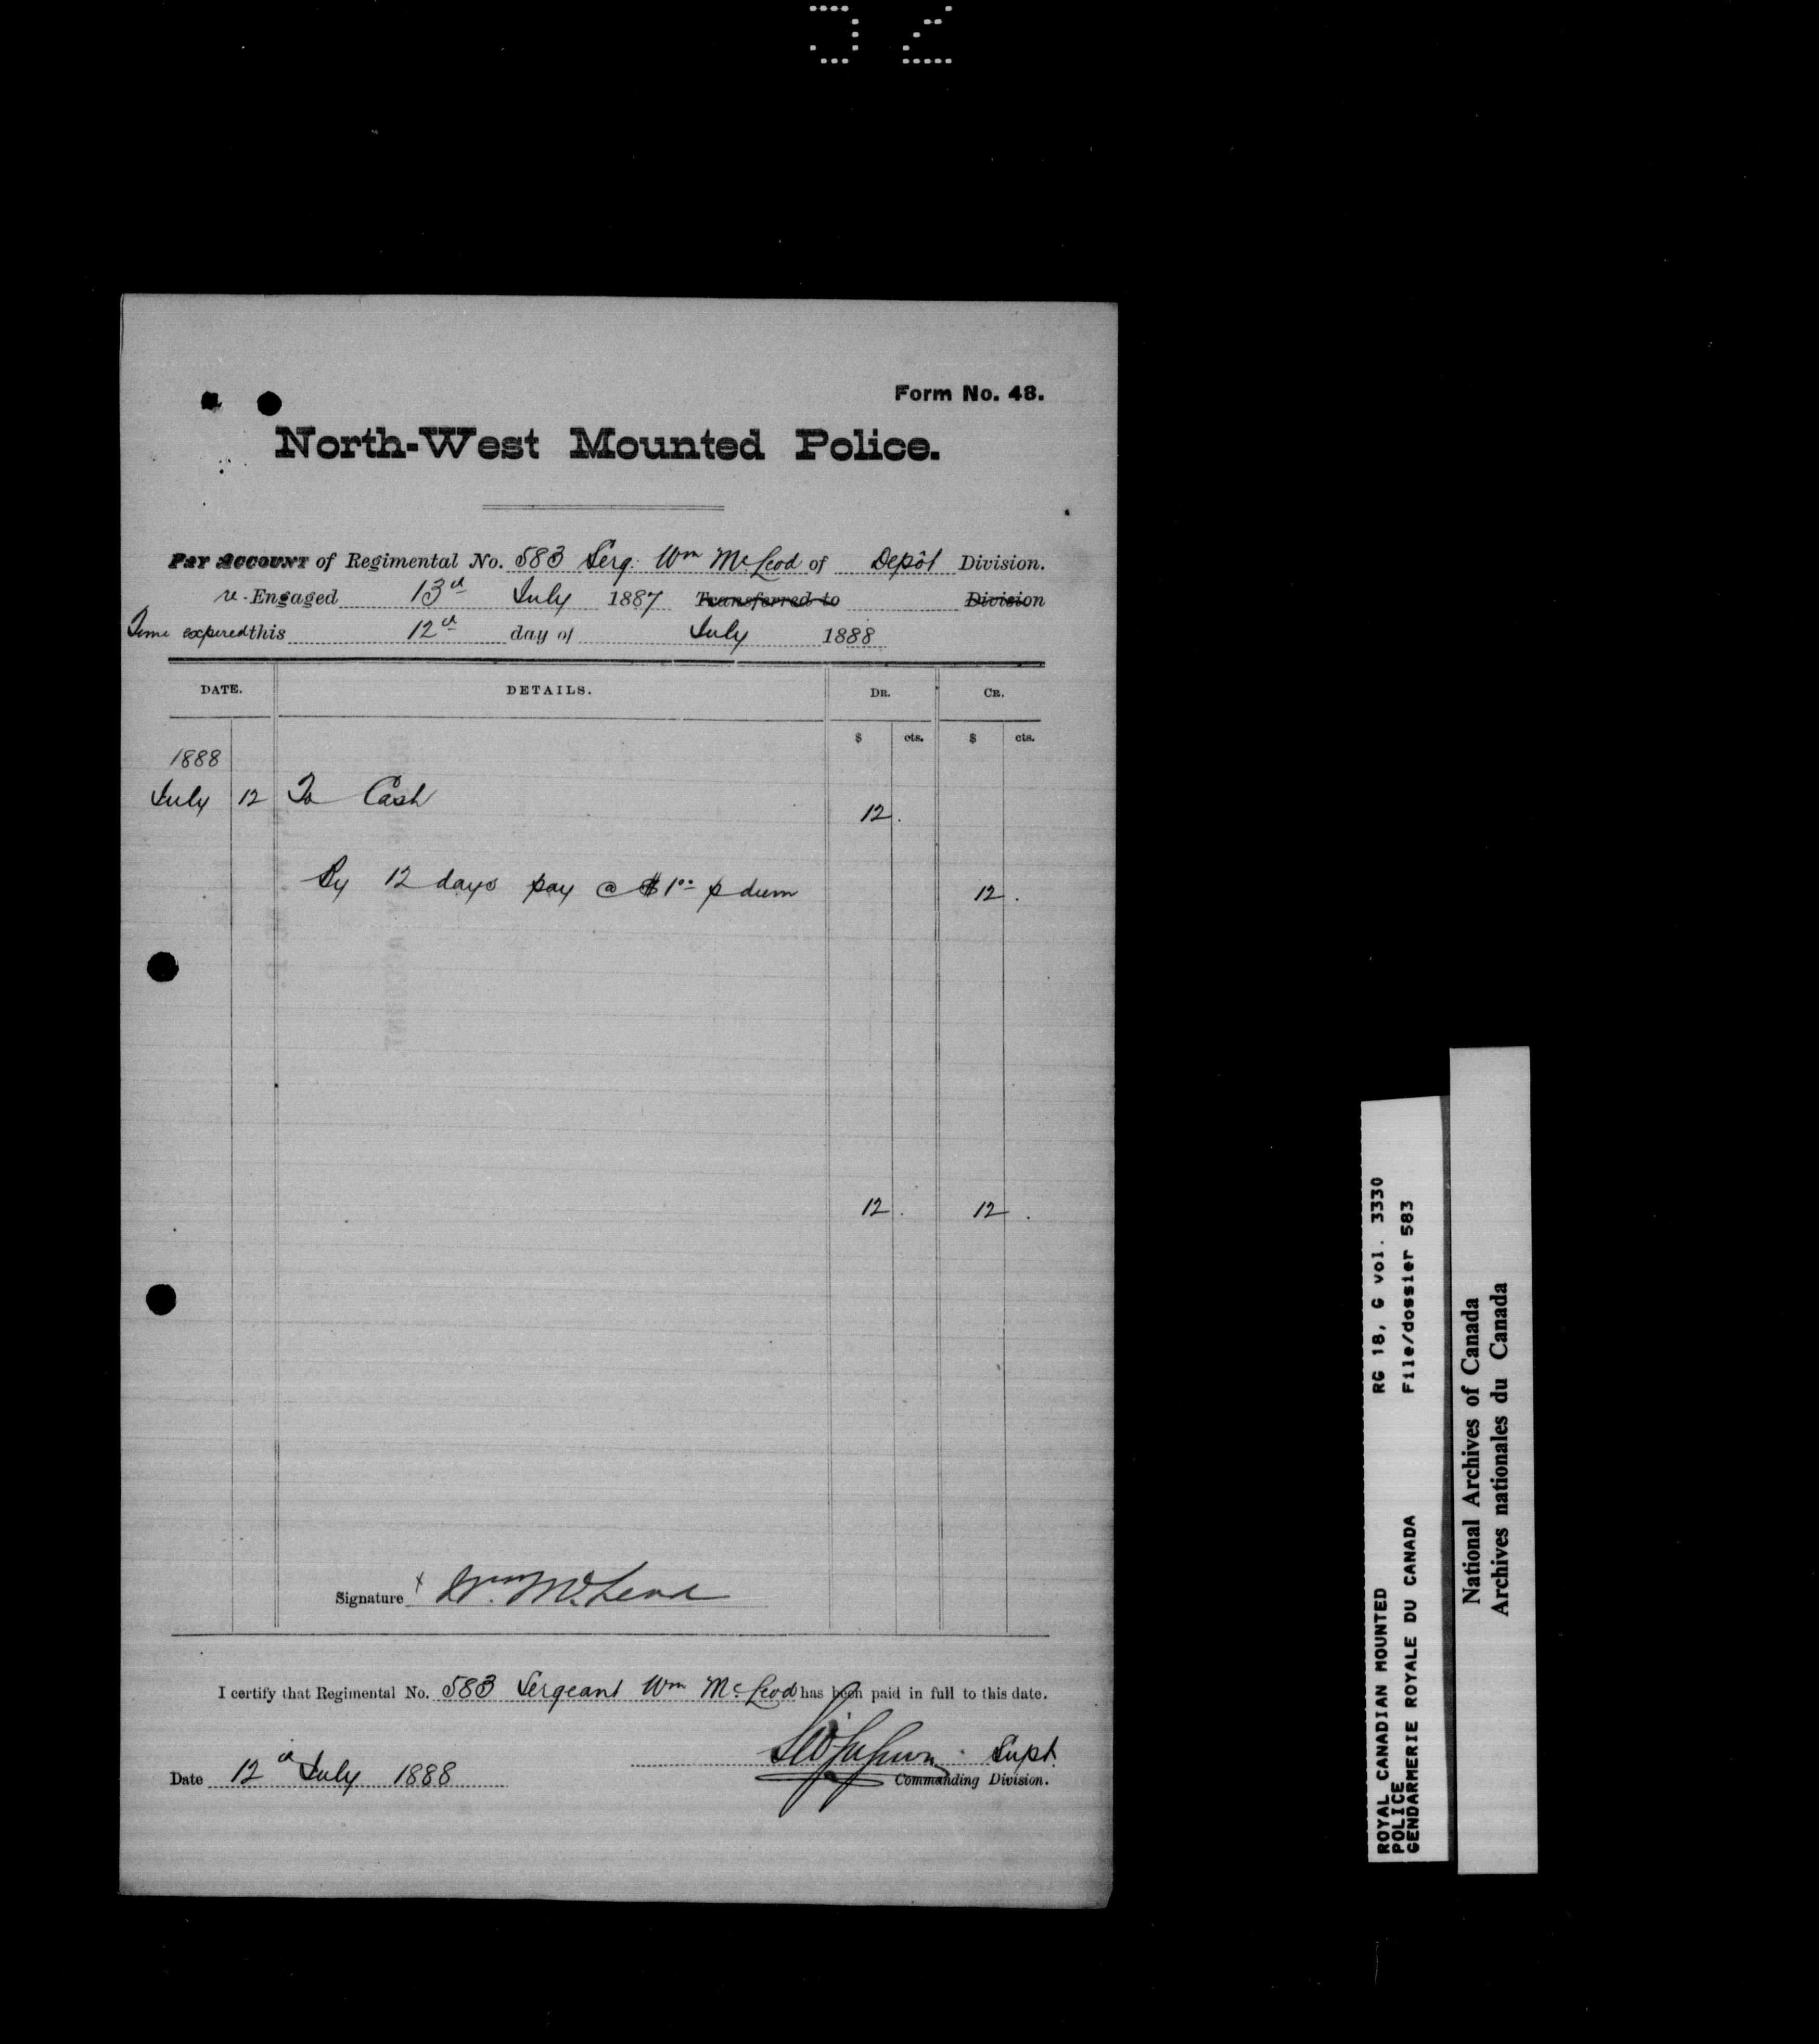 Form No. 48.
North-West Mounted Police.
PAY ACCOUNT of Regimental No. 583 Serg. Wm McLeod of Depôt Division.
re-Engaged 13th July 1887 Transferred to Division
Time expired this 12th day of July 1888
DATE. DETAILS. DR. CR.
$ cts. $ cts.
1888
July 12 To Cash 12.
By 12 days pay @ $1.00 p diem 12.
12. 12.
Signature x Wm. McLeod
I certify that Regimental No. 583 Sergeant Wm McLeod has been paid in full to this date.
Supt
Date 12th July 1888 Commanding Division.
ROYAL CANADIAN MOUNTED RG 18, G vol. 3330
POLICE
GENDARMERIE ROYALE DU CANADA File/dossier 583
National Archives of Canada
Archives nationales du Canada